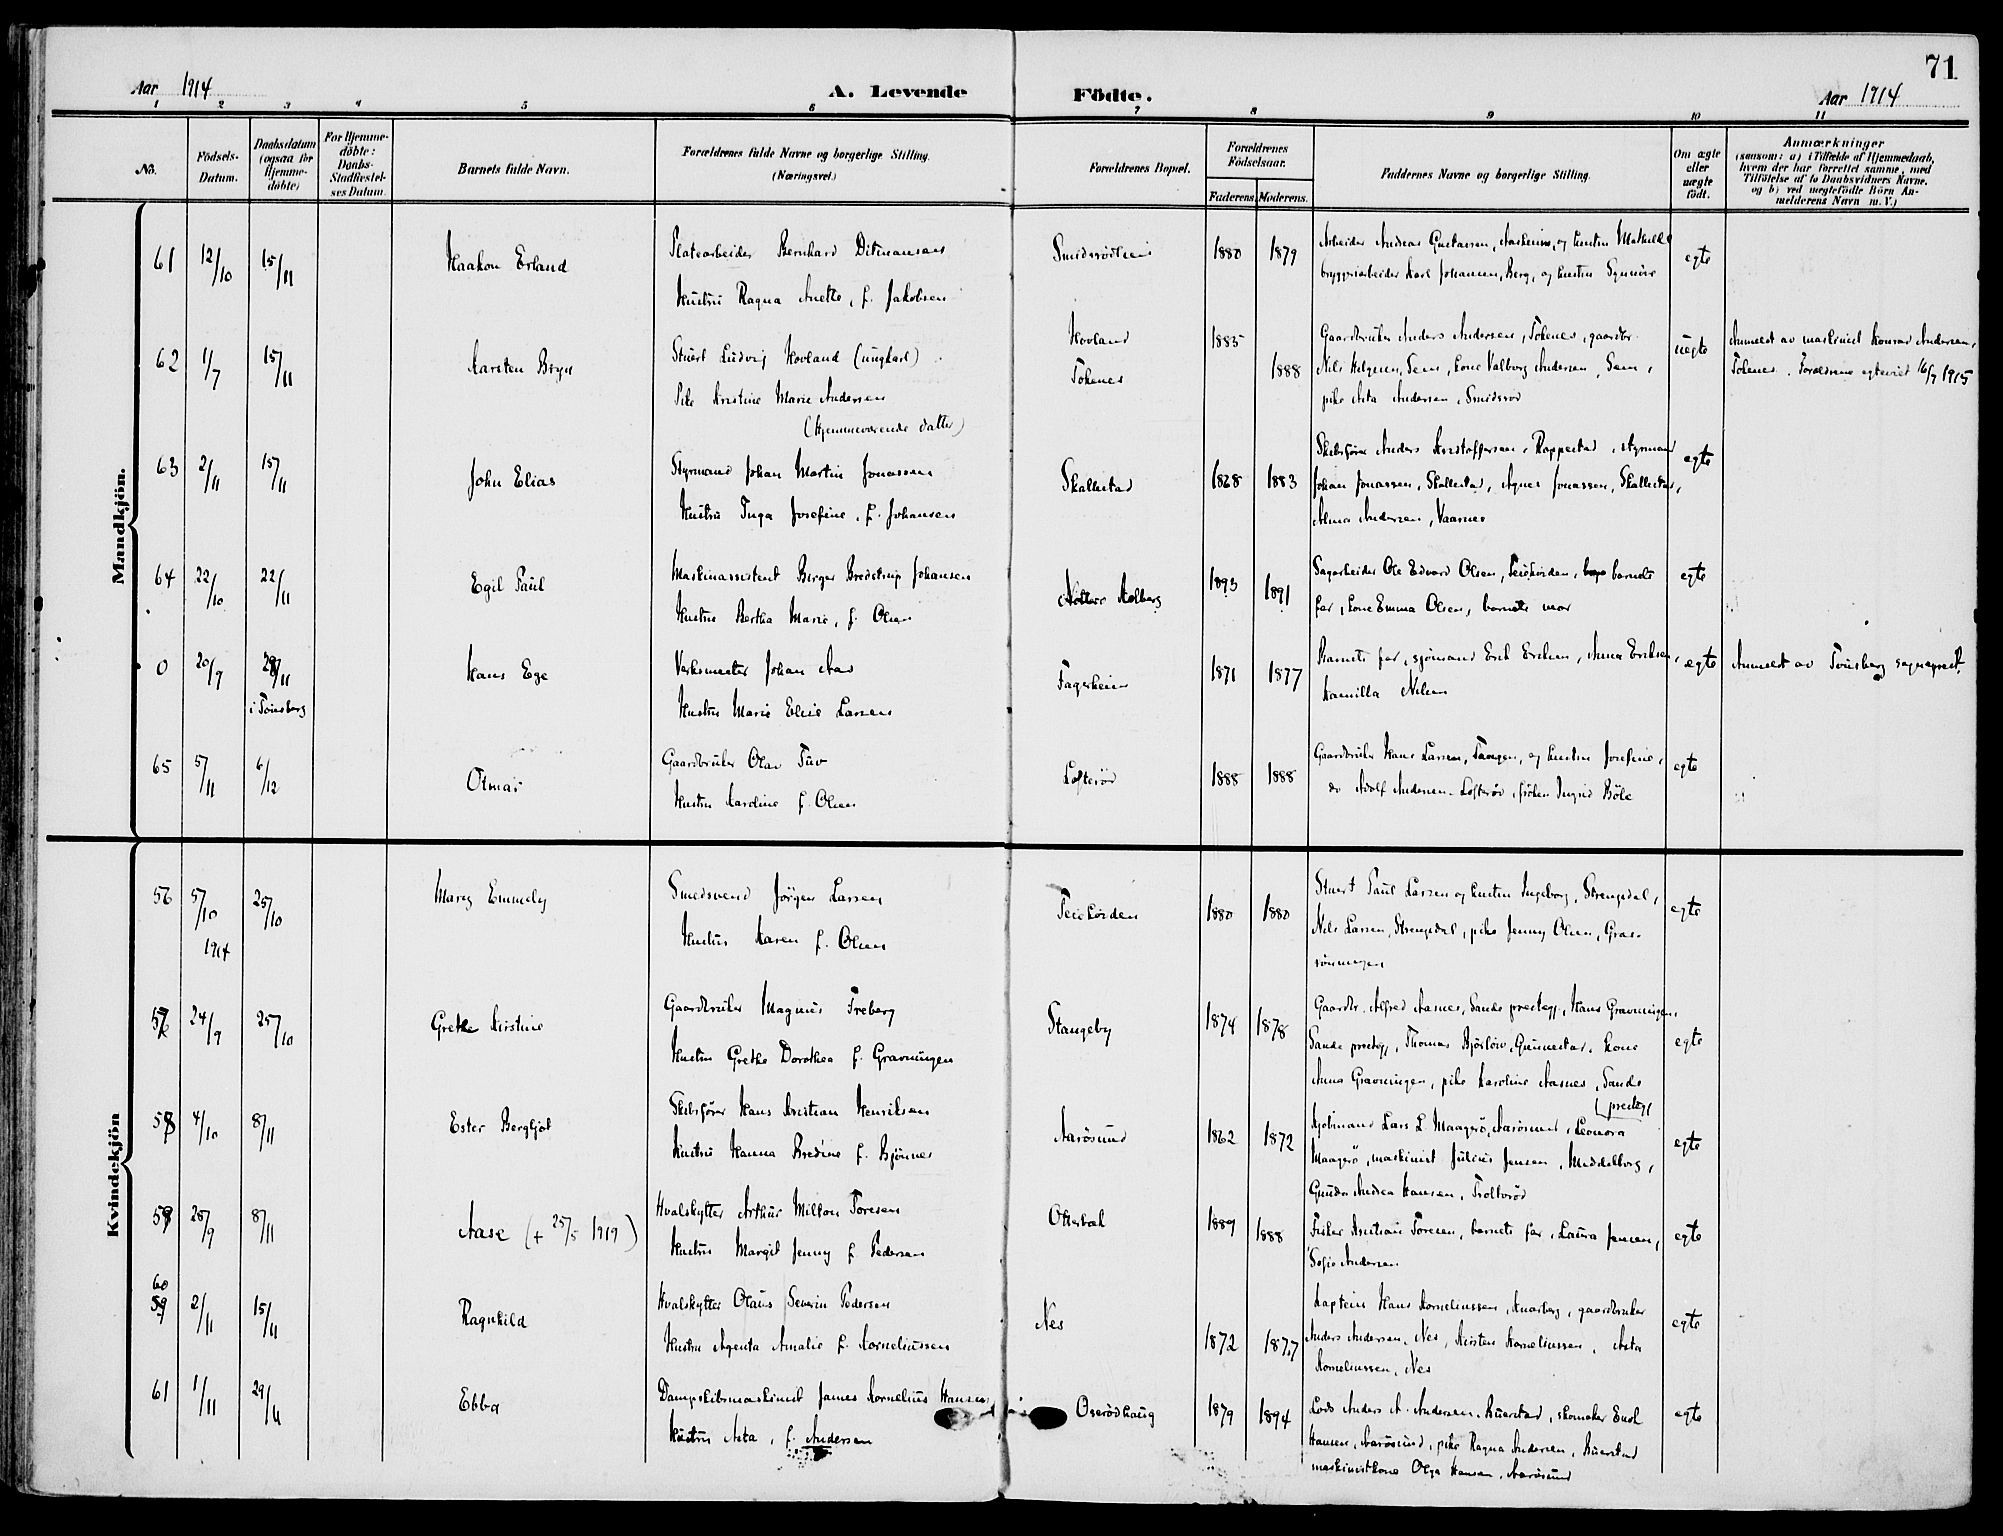 71
Aar 1914
A. Levende Födte.
Aar 1914
1 2 3 4 5 6 7 8 9 10 11
No.
Födsels-Datum.
Daabsdatum (ogsaa for Hjemme-döbte)
For Hjemme-döbte: Daabs-Stadfæstel-ses Datum.
Barnets fulde Navn.
Forældrenes fulde Navne og borgerlige Stilling. (Næringsvei.)
Forældrenes Bopæl.
Forældrenes Födselsaar.
Faderens. Moderens.
Faddernes Navne og borgerlige Stilling.
Om ægte eller uægte födt.
Anmærkninger
(saasom: a) i Tilfælde af Hjemmedaab, hvem der har forrettet samme, med Tilföielse af to Daabsvidners Navne, og b) ved uægtefödte Börn An-melderens Navn m. V.)
Mandkjön.
61 12/10 15/11 Haakon Erland
Platearbeider Bernhard Ditmansen
Hustru Ragna Anette, f. Jakobsen
1880 1879
Arbeider Andreas Gustavsen, og hustru Mathilde
bryggeriarbeider Karl Johansen, Berg, og hustru Synnöve
egte
62 1/7 15/11 Karsten Bryn
Stuert Ludvig Hovland (ungkarl)
Pike Kristine Marie Andersen
(Hjemmeværende datter)
Hovland
Tokenes
1885 1888
Gaardbruker Anders Andersen, Tokenes, gaardbr.
Nils Helgesen, Sem, kone Valborg Andersen, Sem,
pike Asta Andersen, Smidsröd
uegte
Anmeldt av maskinist Konrad Andersen,
Tokenes. Foreldrene egteviet 16/7 1915
63 2/11 15/11 John Elias
Styrmand Johan Martin Jonassen
Hustru Inga Josefine, f. Johansen
Skallestad
1868 1883
Skibsförer Anders Kristoffersen, Rappestad, styrmand
Johan Jonassen, Skallestad, Agnes Jonassen, Skallestad,
Alma Andersen, Vaarnes
egte
64 22/10 22/11 Egil Paul
Maskinassistent Birger Bredstrup Johansen
Hustru Bertha Marie, f. Olsen
1893 1891
Sagarbeider Ole Edvard Olsen, Teiehöiden, barnets
far, kone Emma Olsen, barnets mor
egte
0 20/9 29/11 i Tönsberg Hans Ege
Verksmester Johan Aas
Hustru Marie Elise Larsen
Fagerheim
1871 1877
Barnets far, sjömand Erik Eriksen, Anna Eriksen,
Kamilla Nilsen
egte
Anmeldt av Tönsberg sogneprest.
65 5/11 6/12 Otmar
Gaardbruker Olav Tuv
Hustru Karoline f. Olsen
Lofteröd
1888 1888
Gaardbruker Hans Larsen, Tangen, og hustru Josefine,
do Adolf Andersen Lofteröd, fröken Ingrid Böle
egte
Kvindekjön
56 5/10 1914 25/10 Mary Emmely
Smedsvend Jörgen Larsen
Hustru Karen f. Olsen
Teiehöiden
1880 1880
Stuert Paul Larsen og hustru Ingeborg, Strengsdal,
Nils Larsen, Strengsdal, pike Jenny Olsen, Gras-
egte
57 24/9 25/10 Grethe Kirstine
Gaardbruker Magnus Freberg
Hustru Grethe Dorothea f. Gravningen
Stangeby
1874 1878
Gaardbr. Alfred Aasnes, Sande prestegj., Hans Gravningen,
Sande prestegj., Thomas Bjerlöw, Gunnestad, kone
Anna Gravningen, pike Karoline Aasnes, Sande
prestegj
egte
58 4/10 8/11 Ester Bergljot
Skibsförer Hans Kristian Henriksen
Hustru Hanna Bredine f. Bjönnes
Aarösund
1862 1872
Kjöbmand Lars L. Maagerö, Aarösund, Leonora
Maagerö, maskinist Julius Jensen, Meddelborg,
Gunda Andrea Hansen, Troltvröd
egte
59 25/9 8/11 Aase (+ 25/5 1919)
Hvalskytter Arthur Milton Toresen
Hustru Margit Jenny f. Pedersen
Oterbæk
1889 1888
Fisker Kristian Toresen, barnets far, Laura Jensen,
Sofie Andersen
egte
60 59 2/11 15/11 Ragnhild
Hvalskytter Olaus Severin Pedersen
Hustru Agenta Amalie f. Korneliussen
Nes
1872 1877
Kaptein Hans Korneliussen, Knarberg, gaardbruker
Anders Andersen, Nes, Kirsten Korneliussen, Asta
Korneliussen, Nes
egte
61 1/11 29/11 Ebba
Dampskibsmaskinist James Kornelius Hansen
Hustru Asta, f. Andersen
Oserödhaug
1879 1894
Lods Anders A. Andersen, Buerstad, skomaker Emil
Hansen, Aarösund, pike Ragna Andersen, Buerstad
maskinistkone Olga Hansen, Aarösund
egte